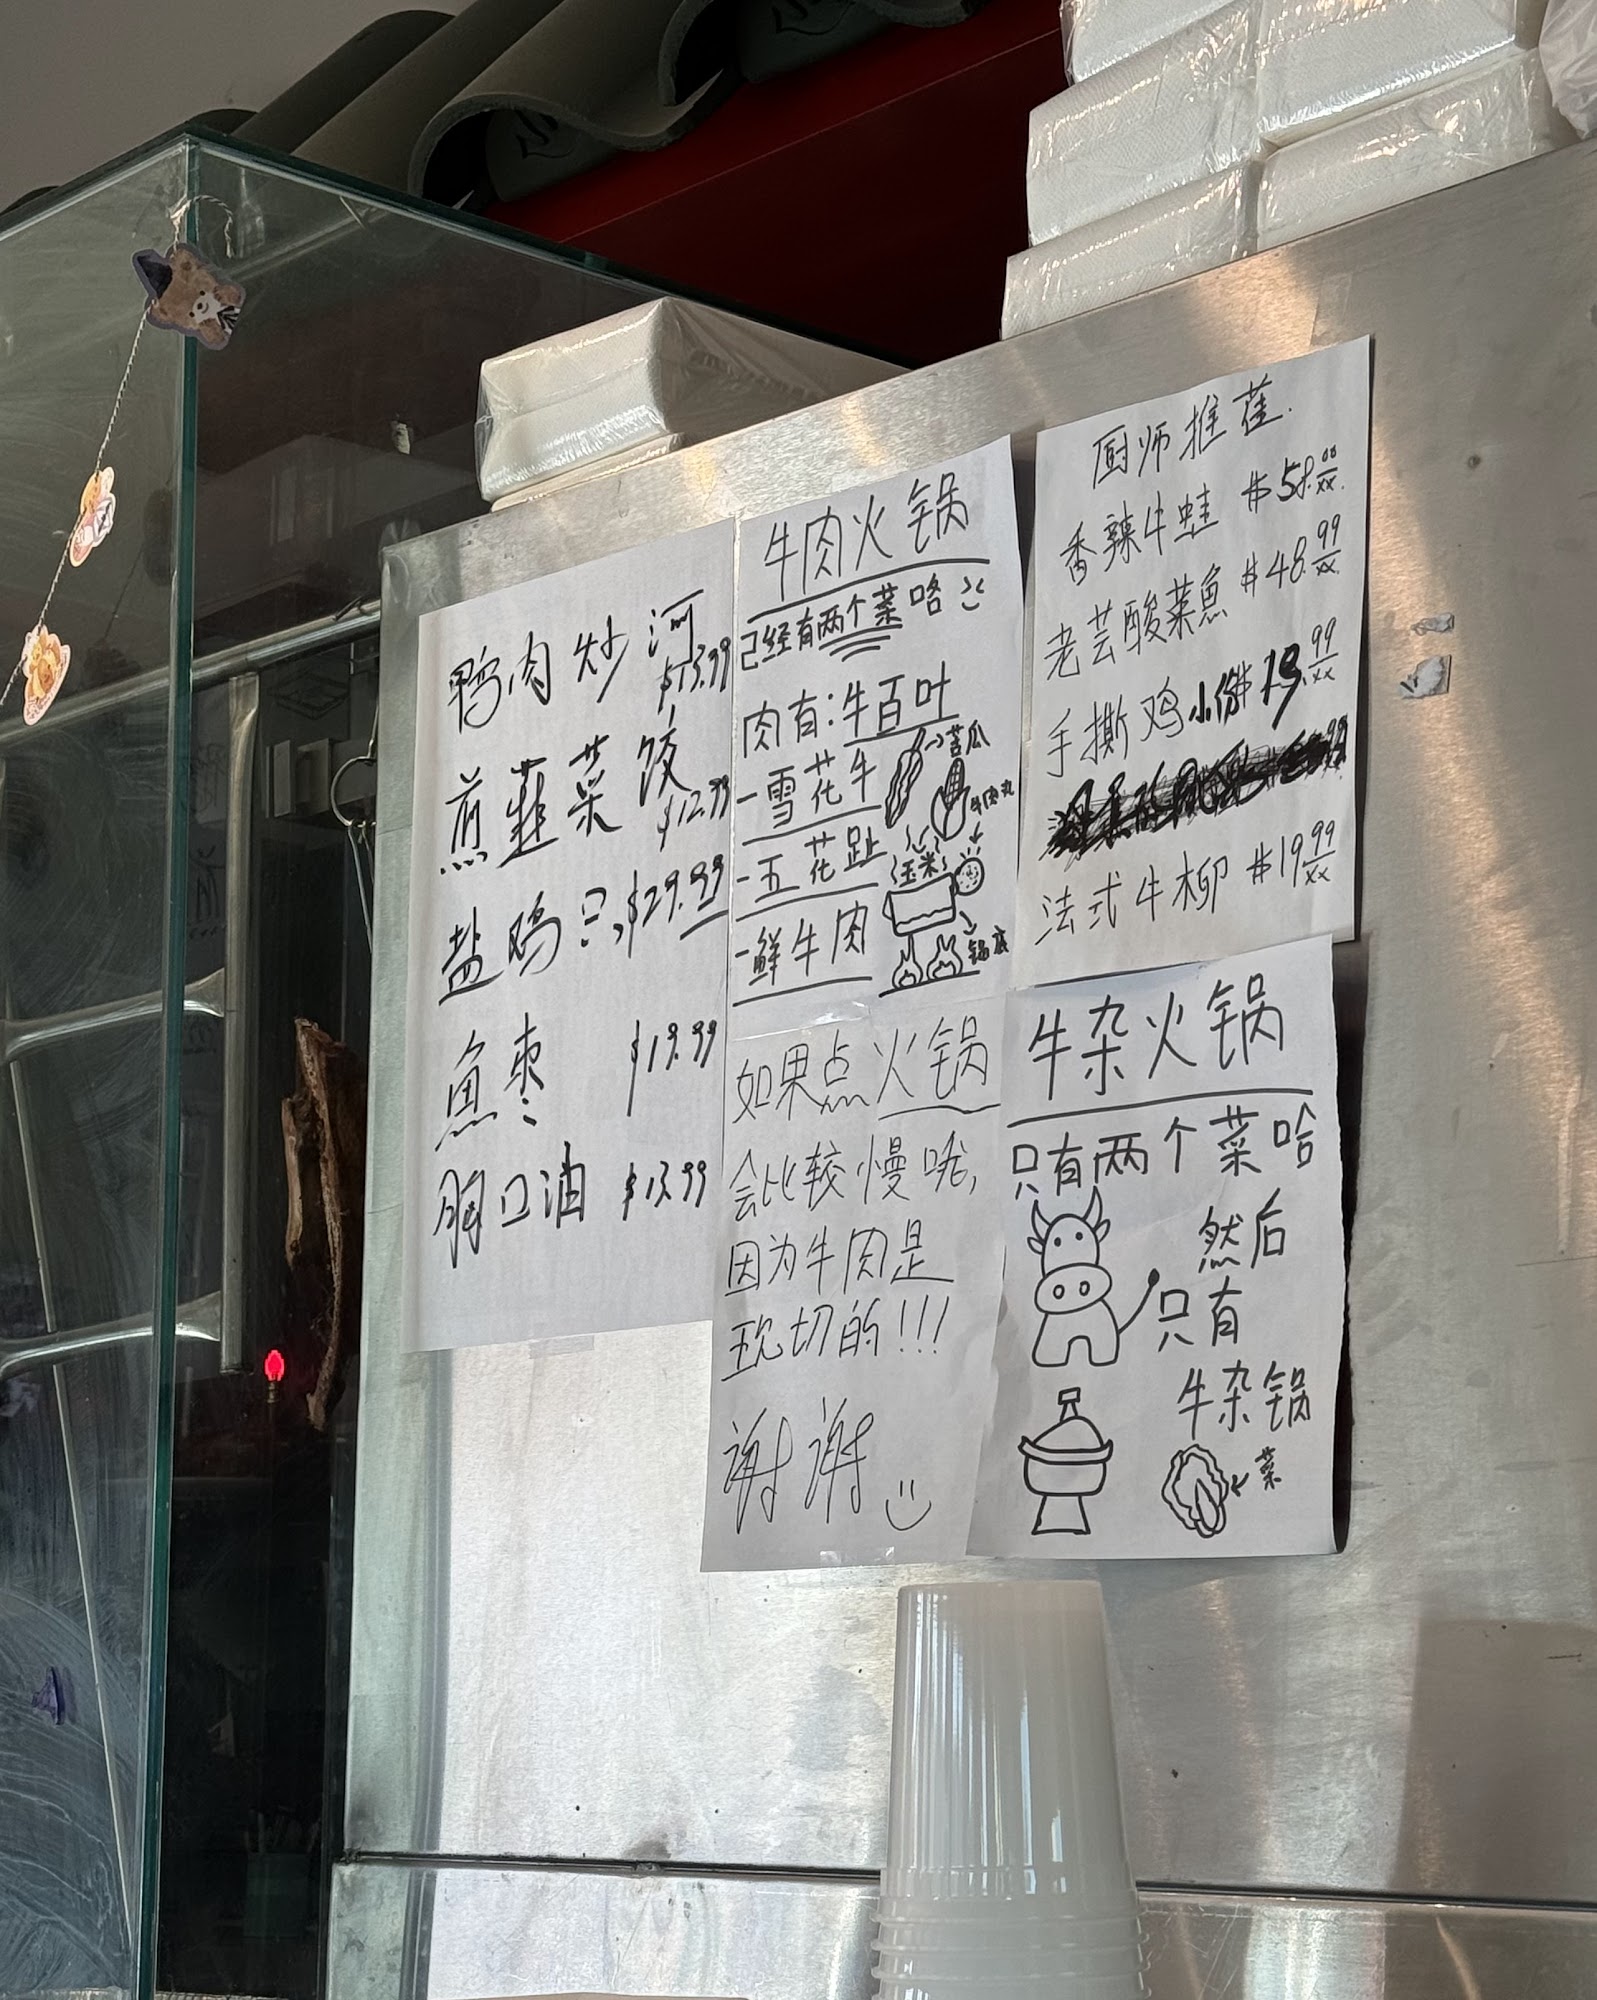 鸭肉炒河
$13.99
煎韮菜饺
$12.99
盐鸡 $29.99
魚枣 $19.99
口油 $13.99
牛肉火锅
已经有两个菜咯
肉有:牛百叶
-雪花牛
-五花趾
-鲜牛肉
苦瓜
牛肉丸
玉米
锅底
如果点火锅
会比较慢哦,
因为牛肉是
现切的!!!
谢谢
厨师推荐.
香辣牛蛙 $58.00
老芸酸菜魚 $48.99
手撕鸡小份$19.99
法式牛柳 $19.99
牛杂火锅
只有两个菜哈
然后
只有
牛杂锅
菜